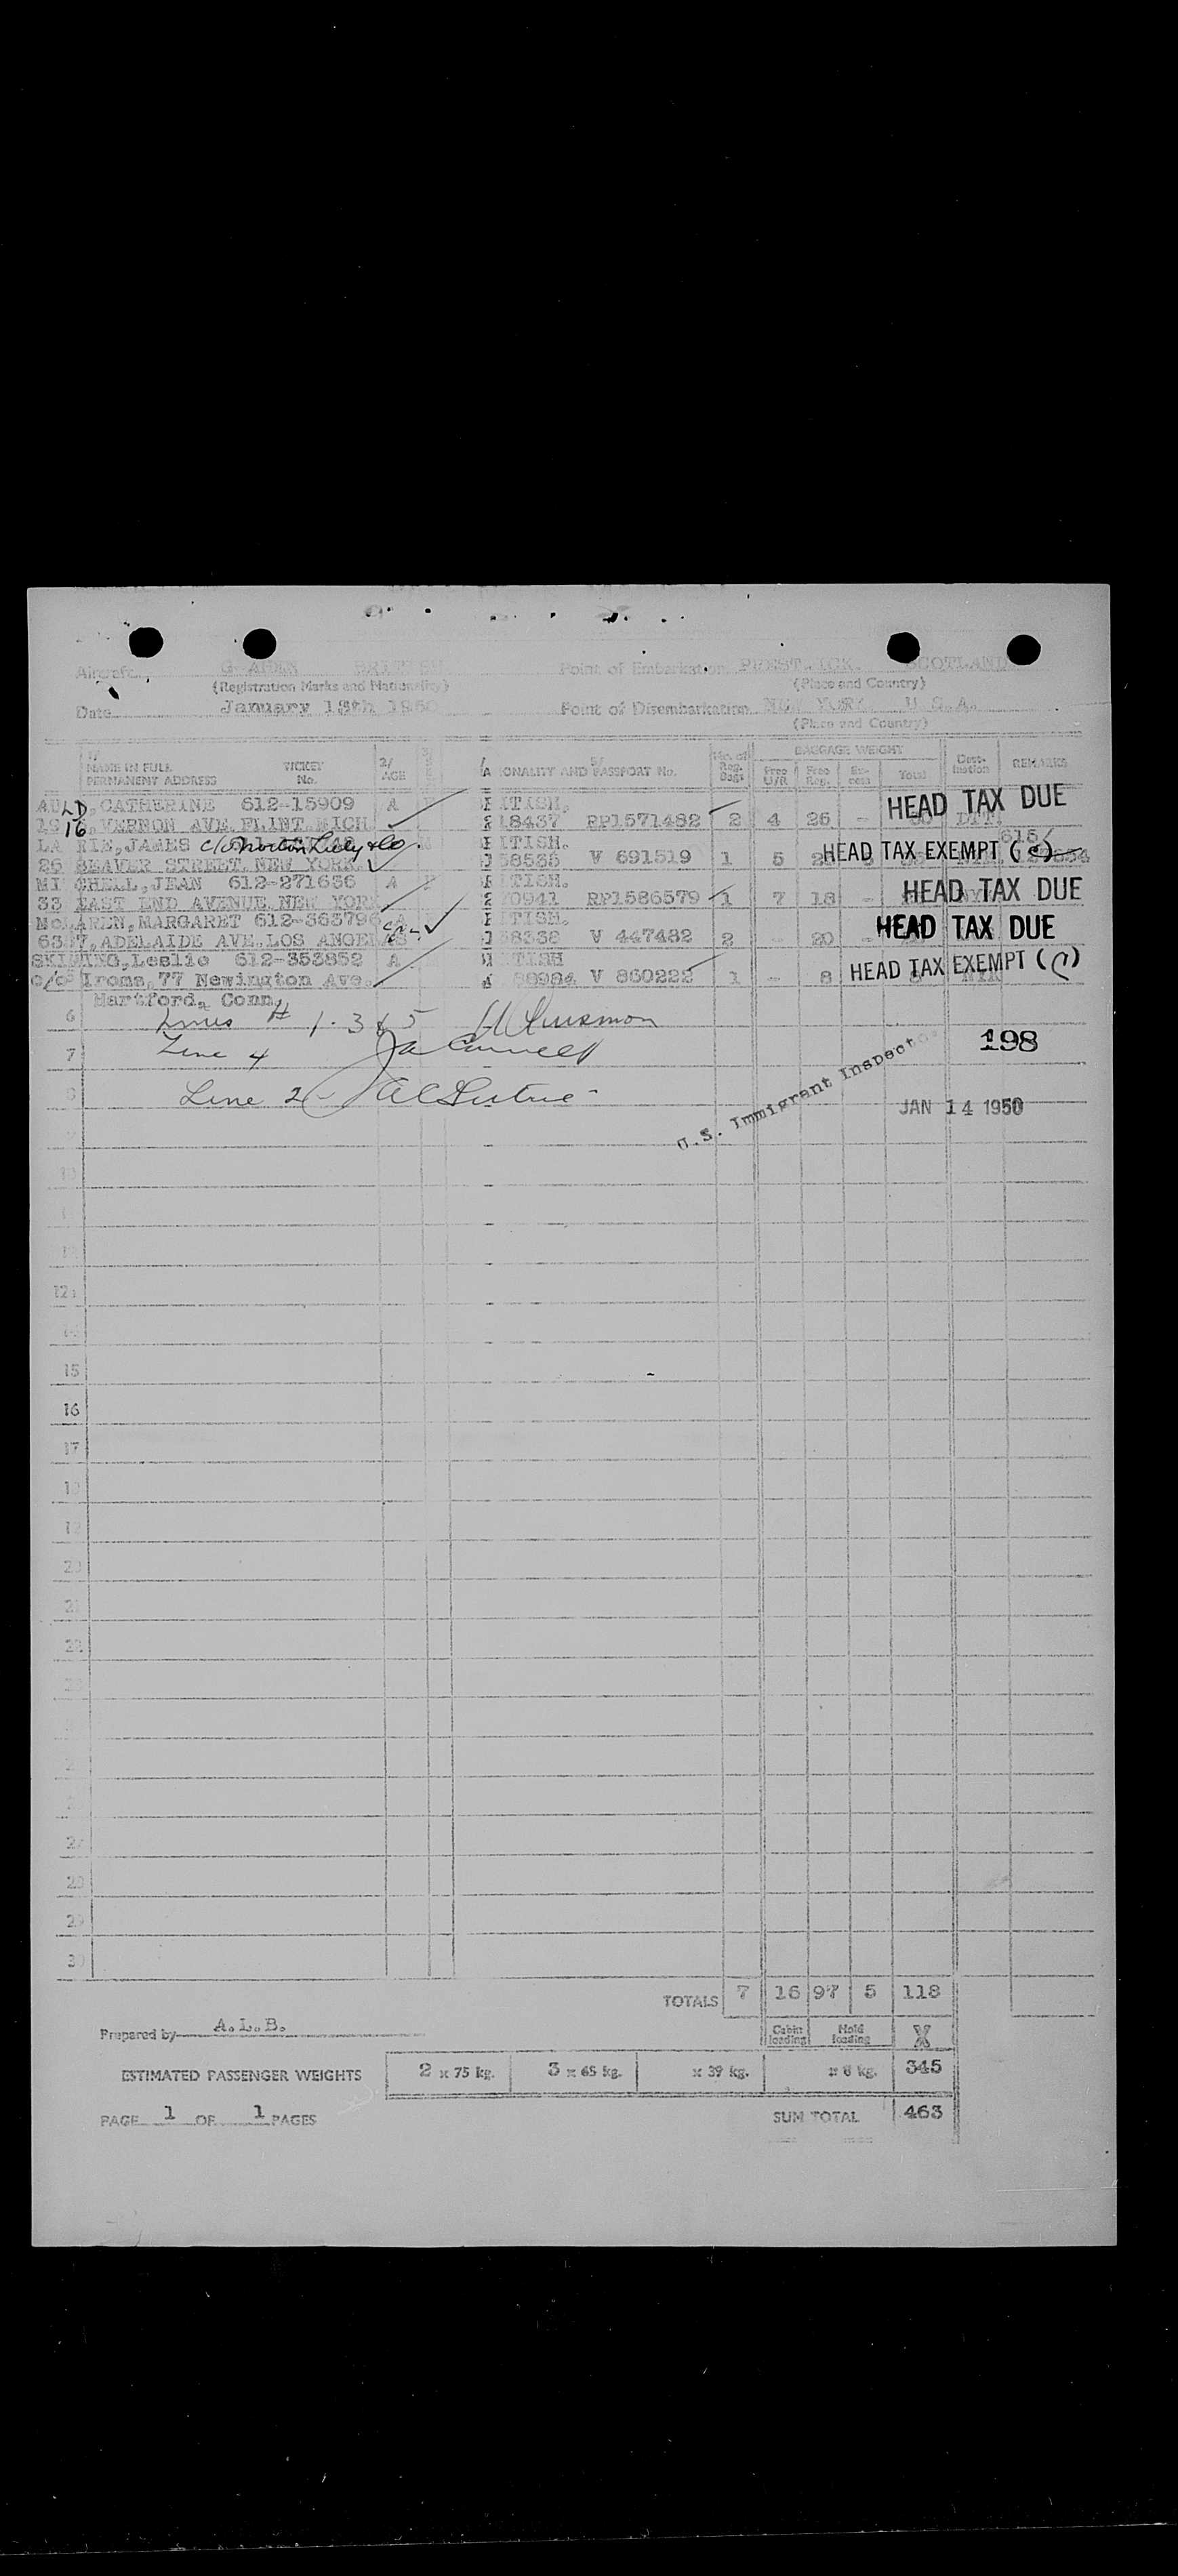 Aircraft BRITISH Point of Embarkation SCOTLAND
(Registration Marks and Nationality) (Place and Country)
Date January 13th 1950 Point of Disembarkation NEW YORK. U.S.A.
(Place and Country)
1/ NAME IN FULL PERMANENT ADDRESS TICKET No. 2/ AGE 5/ ONALITY AND PASSPORT No. No. of Reg. Bags BAGGAGE WEIGHT Free U/R Free Reg. Ex-cess Total Dest-ination REMARKS
AULD, CATHERINE 612-15909 A ITISH. HEAD TAX DUE
1916, VERNON AVE. FLINT. MICH 18437 RP1571482 2 4 26 -
LA RIE, JAMES c/o Norton Lilly & Co. ITISH. 615
26 BEAVER STREET. NEW YORK. 58535 V 691519 1 5 HEAD TAX EXEMPT (C)
MI CHELL, JEAN 612-271636 A ITISH.
33 EAST END AVENUE. NEW YORK 70941 RP1586579 1 7 18 - HEAD TAX DUE
McLAREN, MARGARET 612-363796 A ITISH.
ADELAIDE AVE. LOS ANGELES 58338 V 447482 2 - 20 - HEAD TAX DUE
Leslie 612-353852 A TISH
c/o Irons, 77 Newington Ave. 86984 V 860222 1 - 8 HEAD TAX EXEMPT (C)
Hartford, Conn.
6 Lines # 1-3 & 5
7 Line 4 198
8 Line 2 -
U.S. Immigrant Inspector
JAN 14 1950
15
16
17
18
19
20
21
22
27
28
29
30
TOTALS 7 16 97 5 118
Prepared by A.L.B. Cabin loading Hold loading X
ESTIMATED PASSENGER WEIGHTS 2 x 75 kg. 3 x 65 kg. x 39 kg. x 8 kg. 345
PAGE 1 OF 1 PAGES SUM TOTAL 463